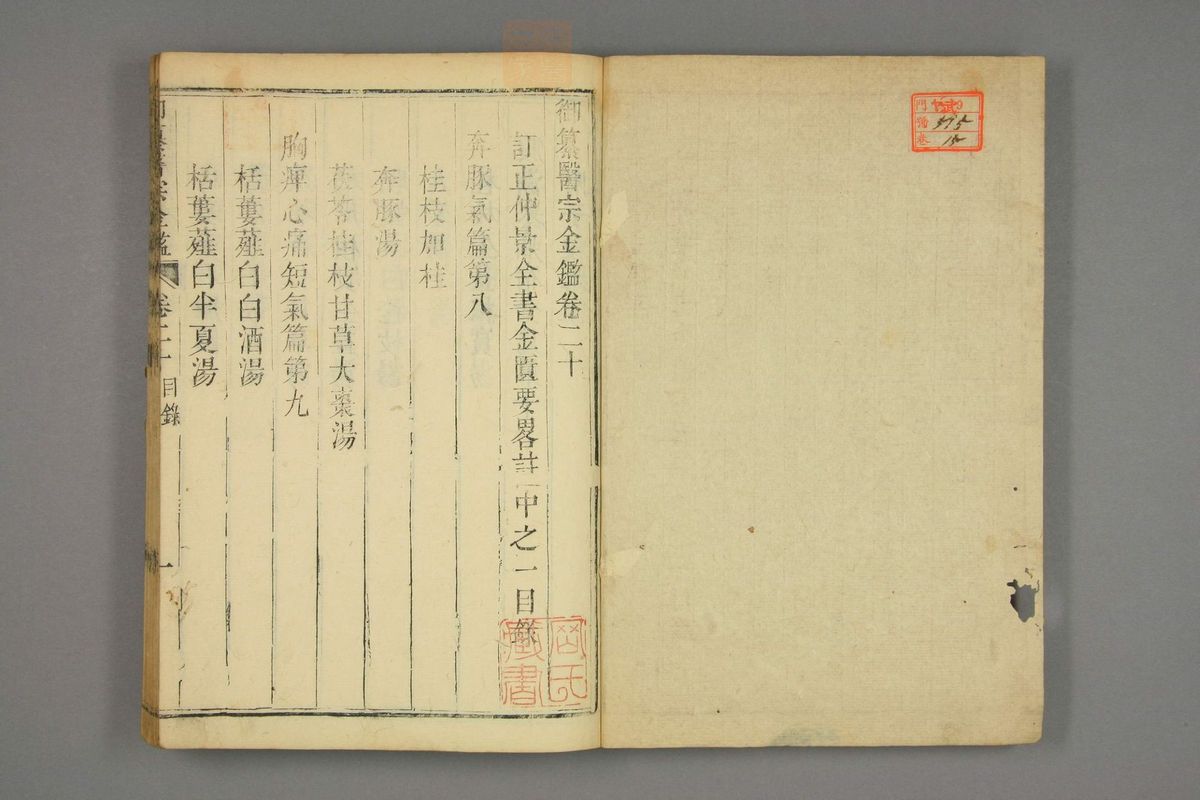 御纂醫宗金鑑卷二十
訂正仲景全書金匱要畧註中之一目錄
奔豚氣篇第八
桂枝加桂
奔豚湯
茯苓桂枝甘草大棗湯
胸痺心痛短氣篇第九
栝蔞薤白白酒湯
栝蔞薤白半夏湯
御纂醫宗金鑑
卷二十
目錄
一
藏書
門
號
卷